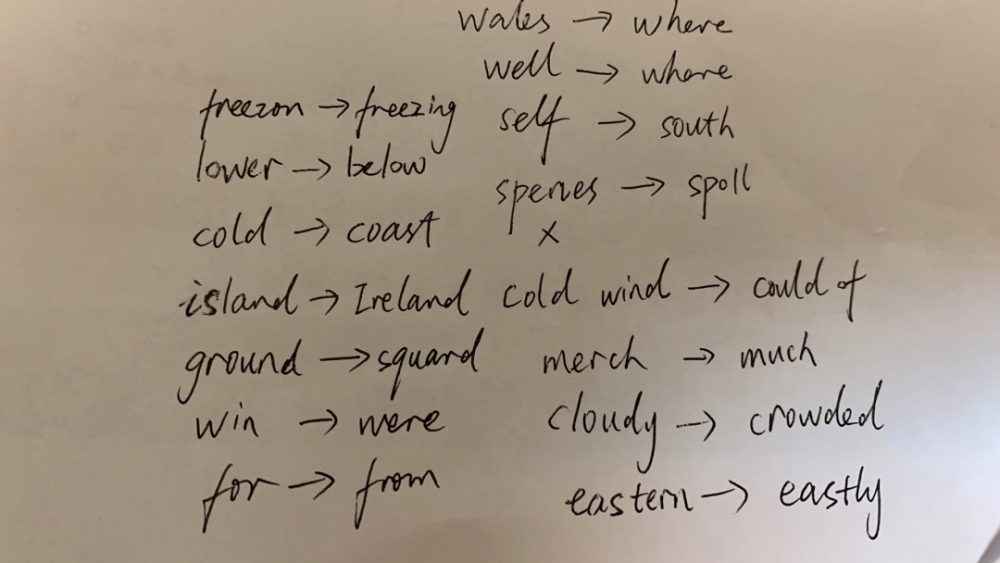 wales → where
well → whore
freezon → freezing
self → south
lower → below
spenes → spoll
x
cold → coast
island → Ireland
cold wind → could of
ground → squard
merch → much
win → were
cloudy → crowded
for → from
eastern → eastly